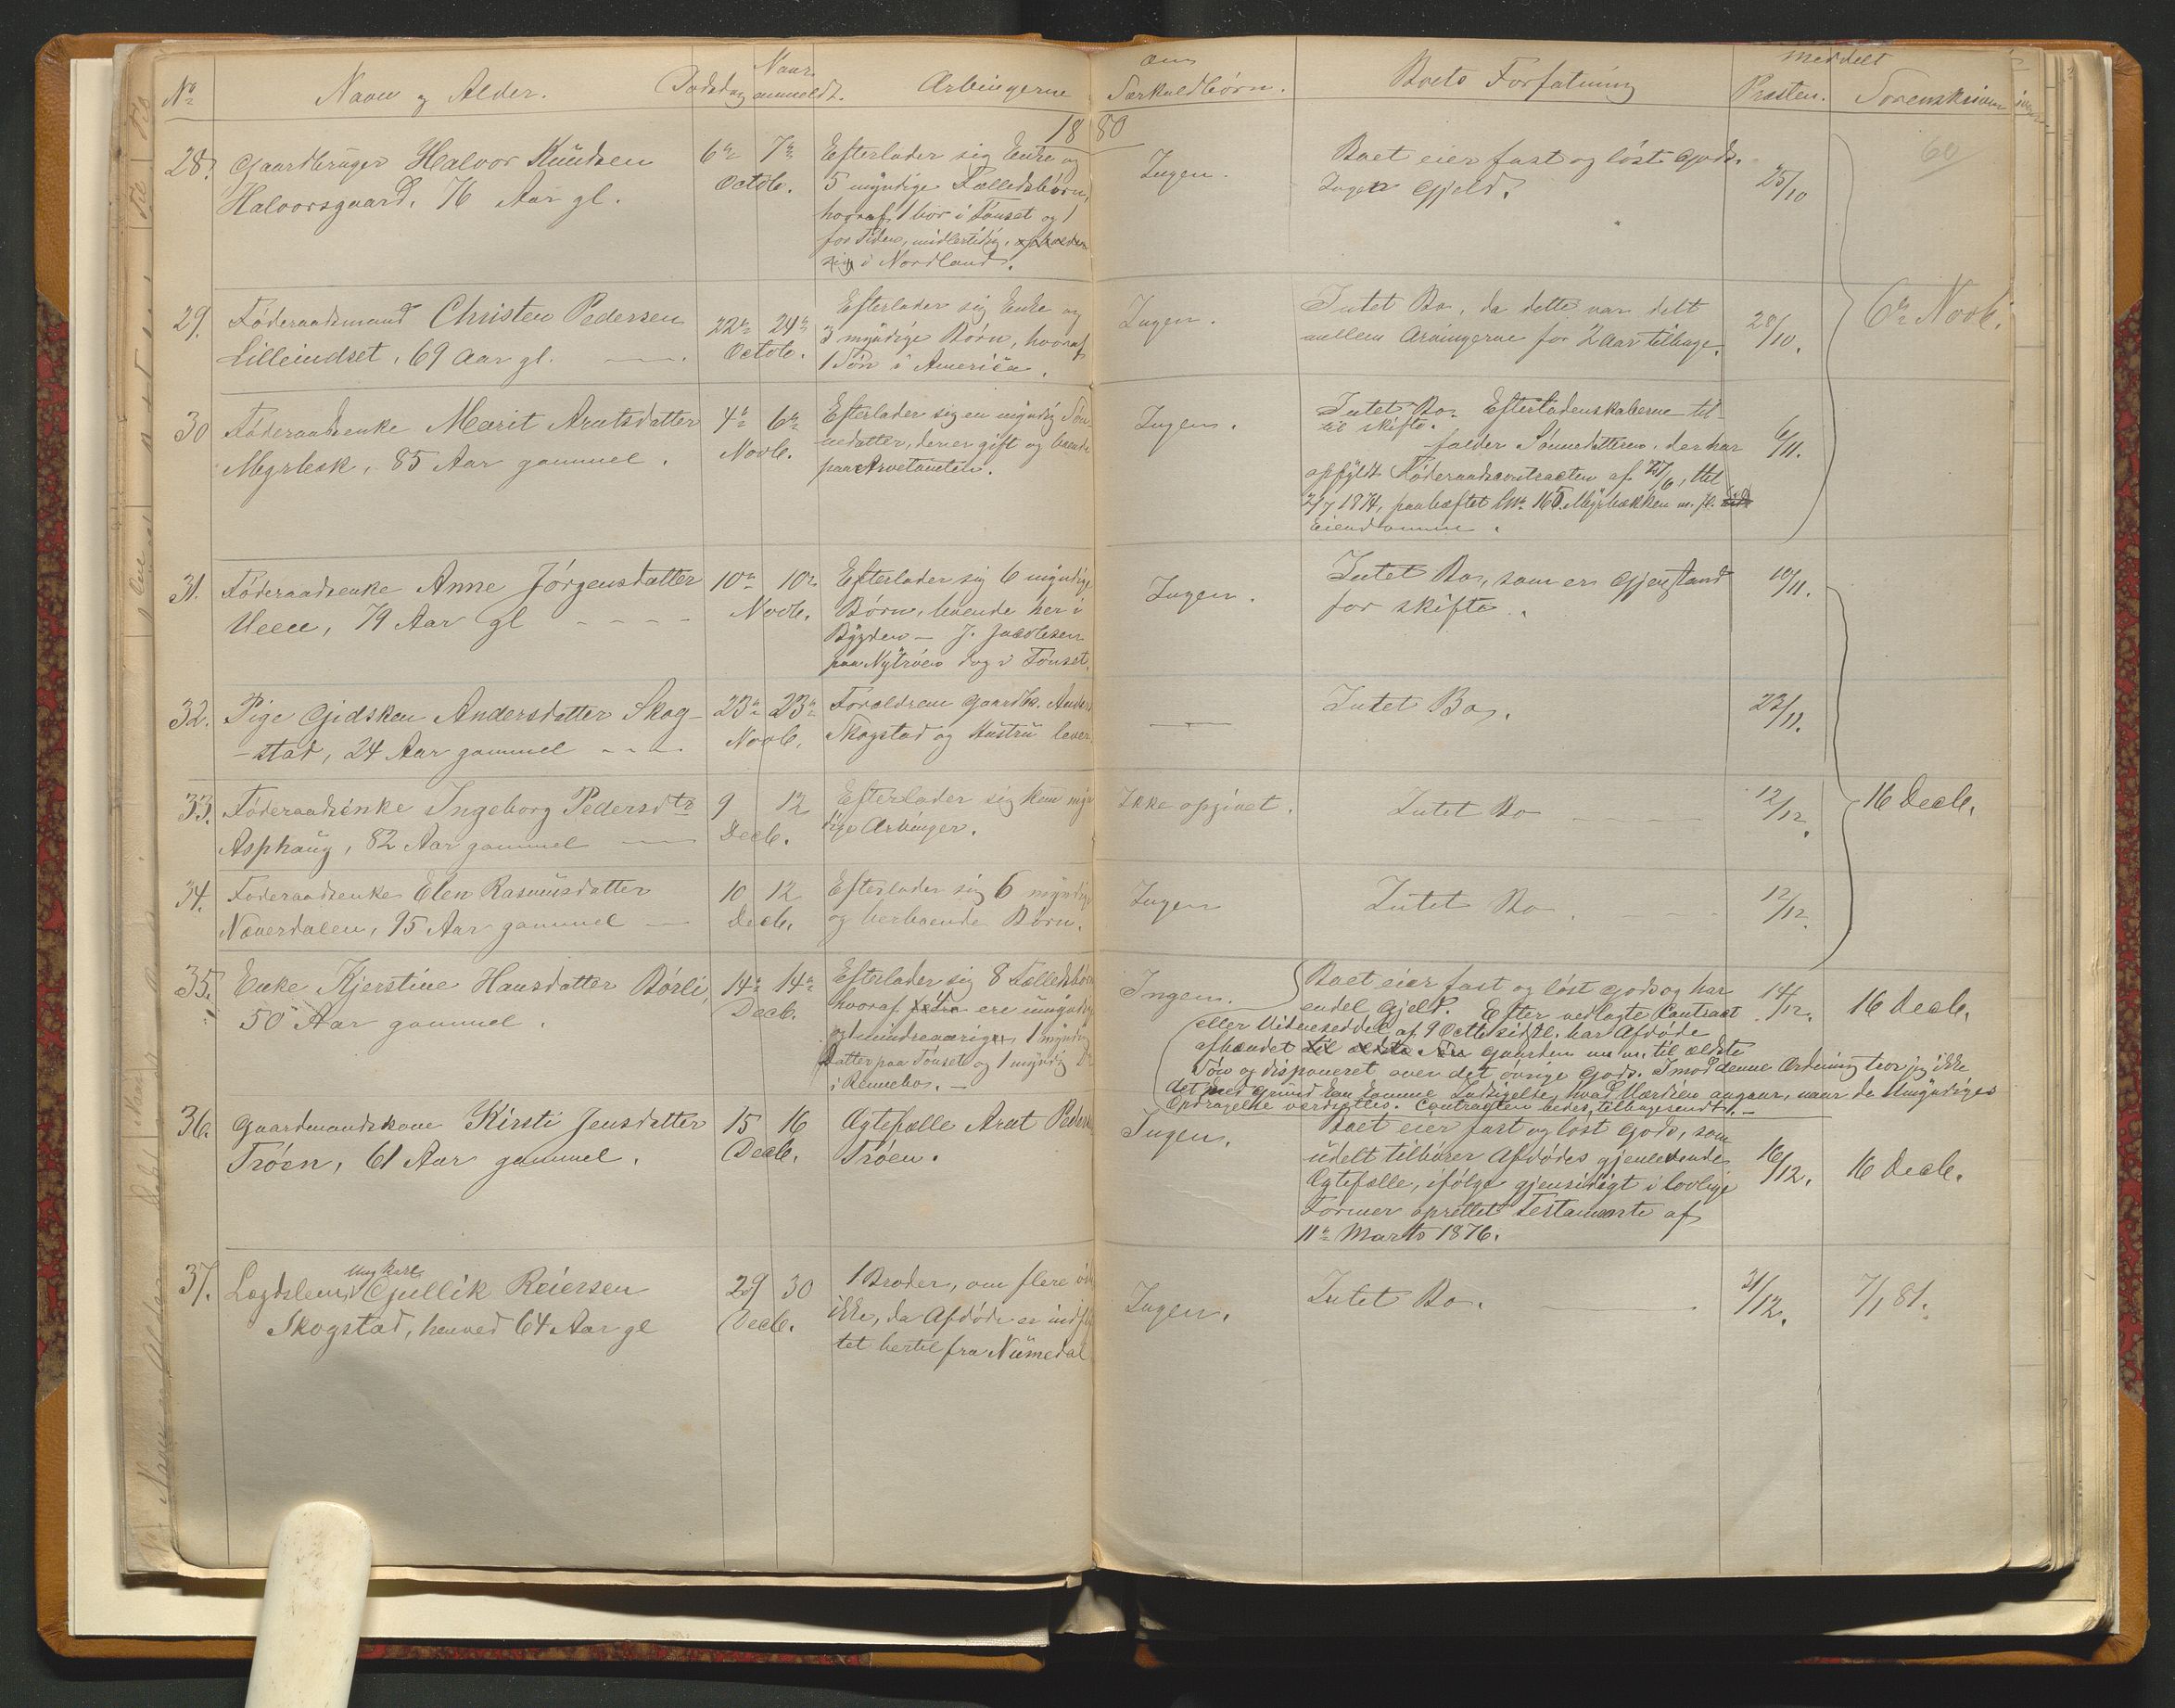 No
Navn og Alder.
Dødsdag
Naar anmeldt.
Arvingerne
om Særkuldbørn.
Boets Forfatning
meddelt
Præsten.
Sorenskriver
1880
60
28.
Gaardbruger Halvor Knudsen
Halvorsgaard, 76 Aar gl.
6te 7de
Octob.
Efterlader sig Enke og
5 myndige Fælledsbørn,
hvoraf 1 bor i Tønset og 1
for Tiden, midlertidig, opholder
sig i Nordland.
Ingen.
Boet eier fast og løst Gods.
Ingen Gjeld.
25/10
29.
Føderaadsmand Christen Pedersen
Lilleindset, 69 Aar gl.
22de 24de
Octob.
Efterlader sig Enke og
3 myndige Børn, hvoraf
1 Søn i America.
Ingen.
Intet Bo, da dette var delt
mellem Arvingerne for 2 Aar tilbage.
28/10.
6te Novb.
30
Føderaadsenke Marit Arntsdatter
Myrbæk, 85 Aar gammel.
4de 6te
Novb.
Efterlader sig en myndig Søn-
nedatter, der er gift og boende
paa Arvetomten.
Ingen.
Intet Bo. Efterladenskaberne til-
til skifte.
falder Sønnedatteren, der har
opfyldt Føderaadscontracten af 27/6, thl
2/7 1874, paaheftet Lno 165 Myrbækken m. fl.
Eiendomme.
6/11.
31.
Føderaadsenke Anne Jørgensdatter
Ueen, 79 Aar gl
10de 10de
Novb.
Efterlader sig 6 myndige
Børn, boende her i
Bygden — J. Jacobsen
paa Nytrøen dog i Tønset.
Ingen.
Intet Bo, som er Gjenstand
for skifte.
10/11.
32.
Pige Gidsken Andersdatter Skog-
-stad, 24 Aar gammel
23de 23de
Novb.
Forældrene Gaardb. Anders
Skogstad og Hustru lever
Intet Bo.
23/11.
33.
Føderaadsenke Ingeborg Pedersdtr
Asphaug, 82 Aar gammel
9 12
Decb.
Efterlader sig kun myn
dige Arvinger.
Ikke opgivet.
Intet Bo
12/12.
16 Decb.
34.
Føderaadsenke Elen Rasmusdatter
Næverdalen, 75 Aar gammel
10 12
Decb.
Efterlader sig 6 myndige
og herboende Børn.
Ingen
Intet Bo.
12/12.
35.
Enke Kjerstine Hansdatter Børli,
50 Aar gammel.
14de 14de
Decb.
Efterlader sig 8 Fælledsbørn
hvoraf 4 ere umyndige
og mindreaarige, 1 myndig
Datter paa Tønset og 1 myndig Dr
i Rennebo. —
Ingen.
Boet eier fast og løst Gods og har
endel Gjeld. Efter vedlagte Contract
eller Uidneseddel af 9 Octb sidstl. har Afdøde
afhændet til ældste Søn Gaarden m.m. til ældste
Søn og disponeret over det øvrige Gods. Imod denne Ordning tror jeg ikke
det med Grund kan komme Indsigelse, hvad Værdien angaar, naar de Umyndiges
Opdragelse værdsættes. Contracten bedes tilbagesendt. —
14/12.
16 Decb.
36.
Gaardmandskone Kirsti Jensdatter
Trøen, 61 Aar gammel.
15 16
Decb.
Ægtefælle Arnt Peders
Trøen.
Ingen.
Boet eier fast og løst Gods, som
udelt tilhører Afdødes gjenlevende
Ægtefælle, ifølge gjensidigt i lovlige
Former oprettet Testamente af
11te Marts 1876.
16/12.
16 Decb.
37.
Lægdslem, Ungkarl Gullik Reiersen
Skogstad, henved 64 Aar gl
29 30
Decb.
1 Broder, om flere vides
ikke, da Afdøde er indflyt
tet hertil fra Numedal
Ingen.
Intet Bo.
31/12.
7/1 81.